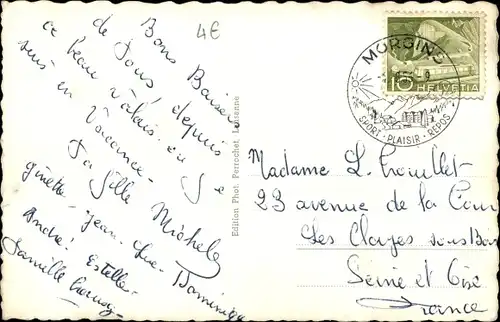 4€
Bons Baisers
de tous, depuis
ce beau Valais où je
suis en Vacance -
Ta fille Michele
Ginette - Jean-Luc - Dominique
André Estelle
famille
Edition Phot. Perrochet, Lausanne
MORGINS
SPORT - PLAISIR - REPOS
10 HELVETIA
Madame L. Trouillet
23 avenue de la Cour
Les Clayes sous Bois
Seine et Oise
France